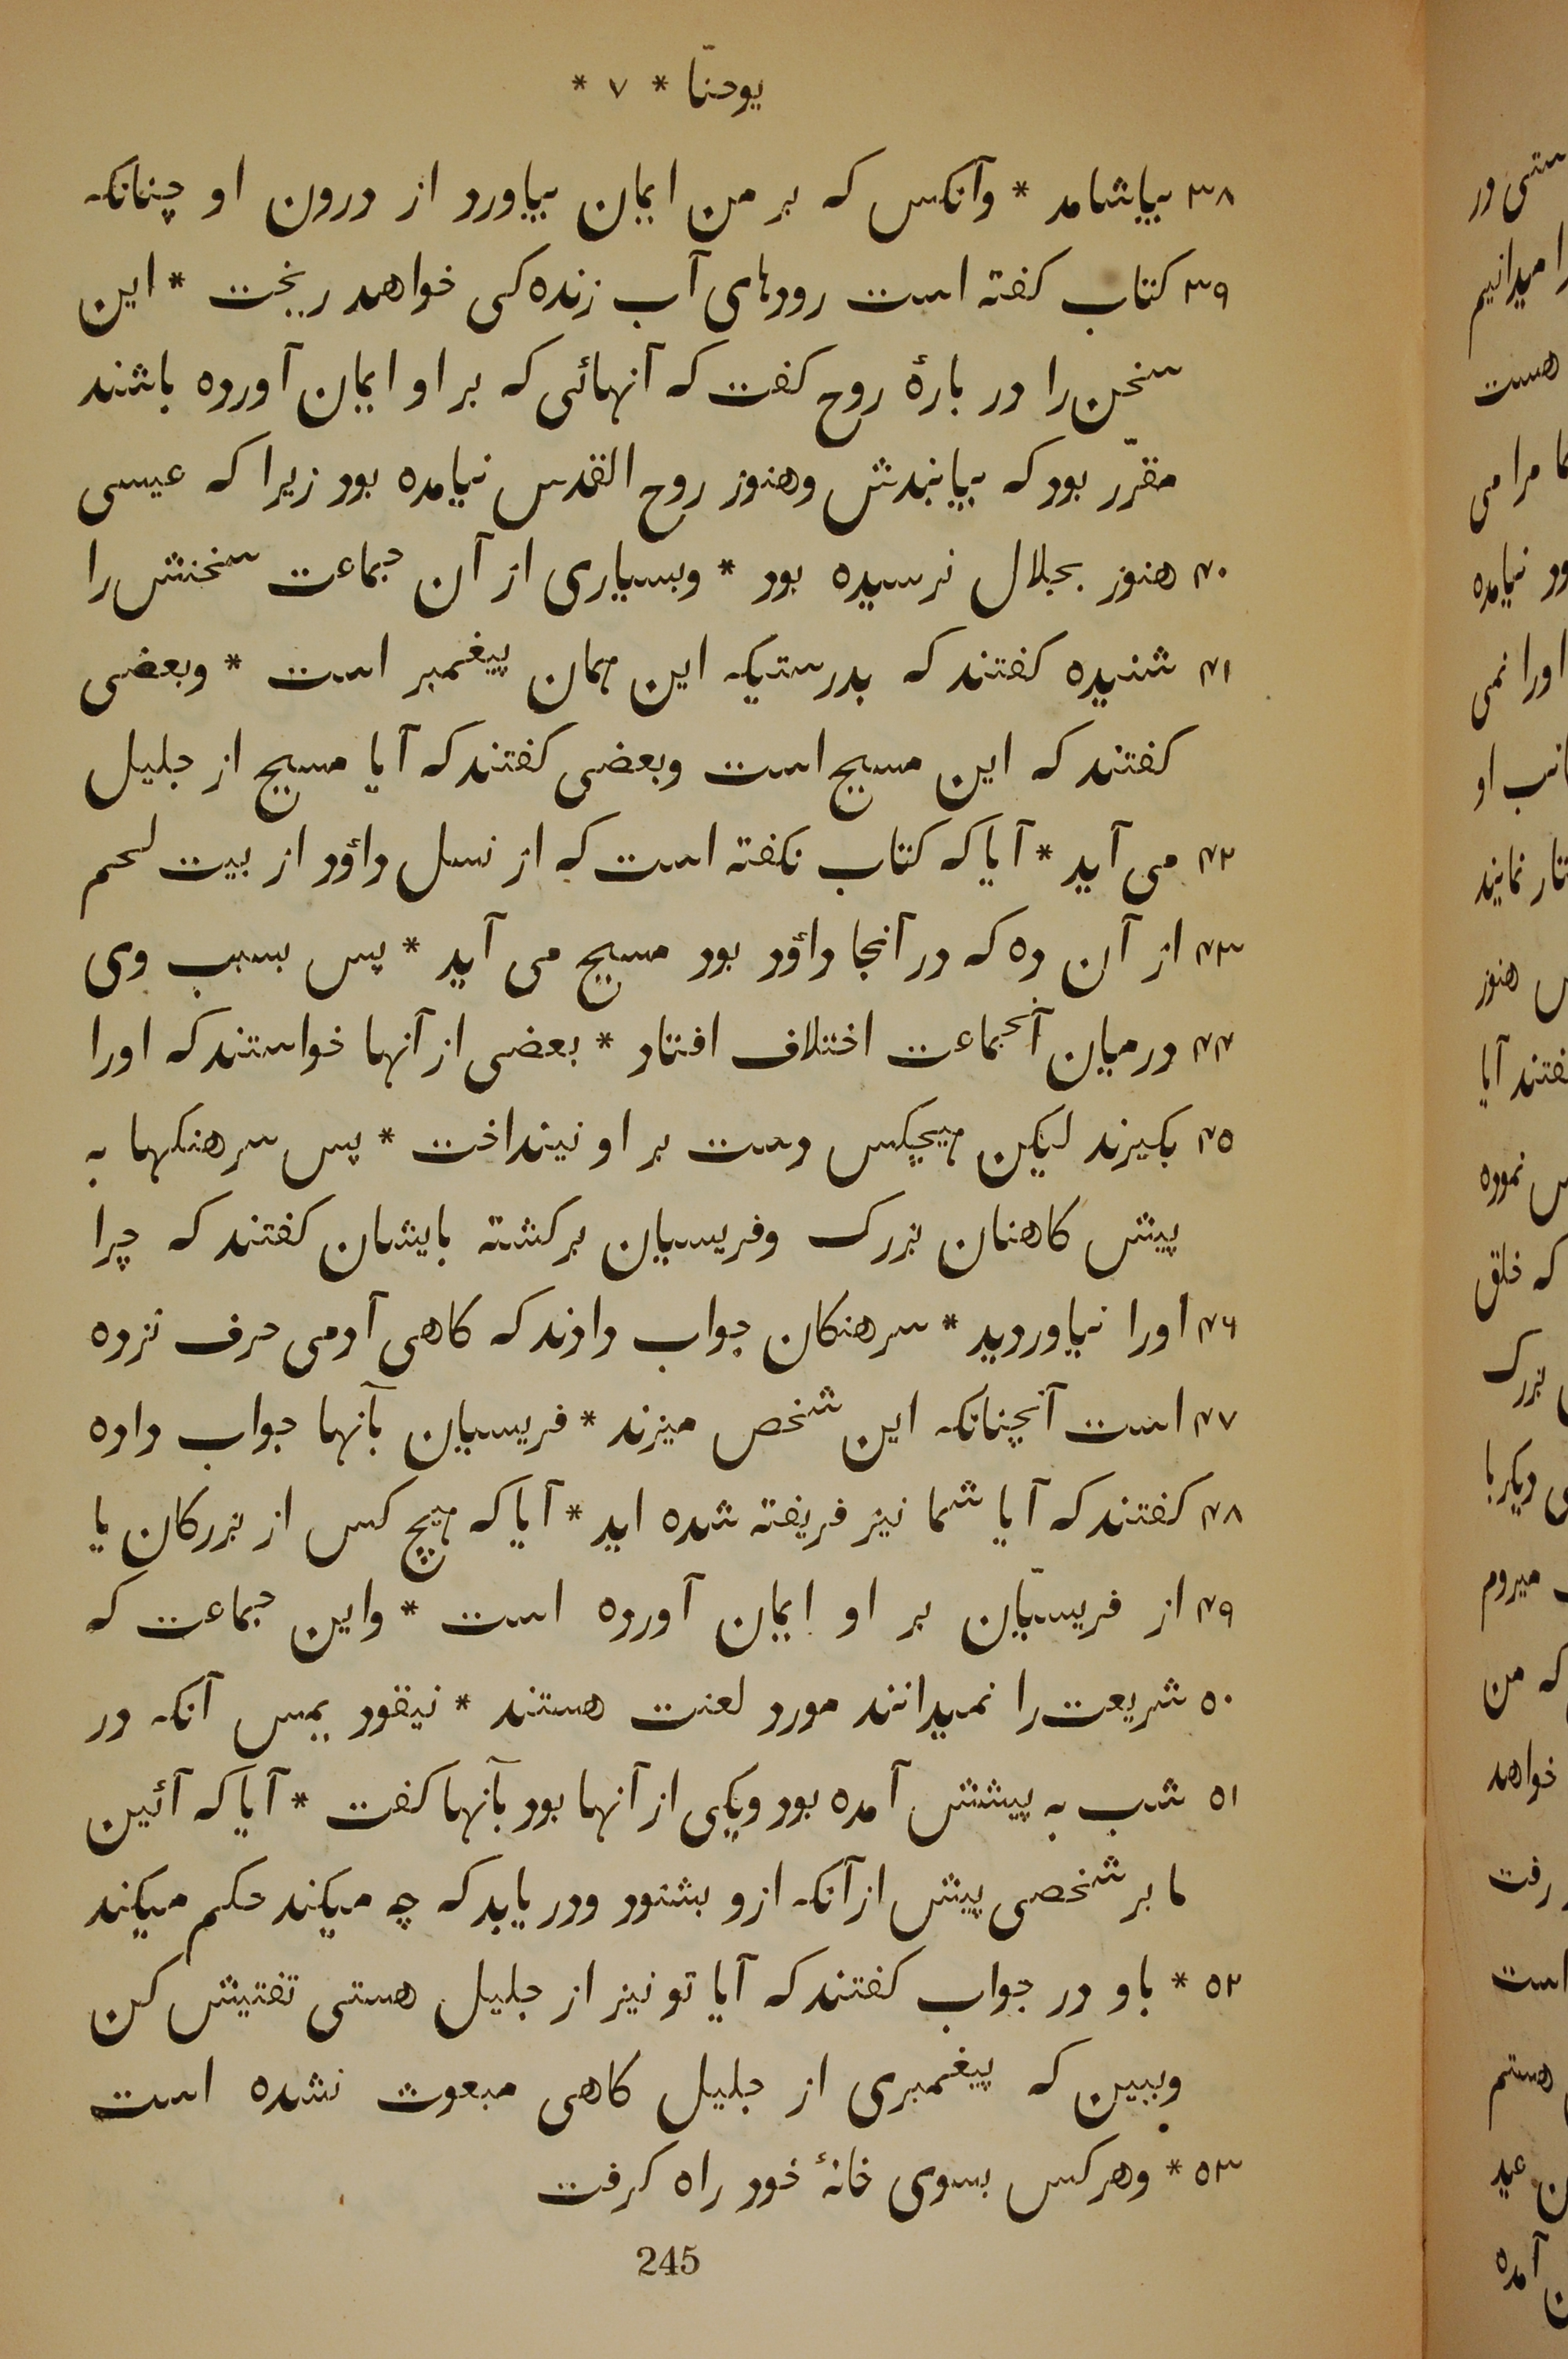 یوحنّا * ٧ *
٣٨ بیاشامد * وآنکس که بر من ایمان بیاورد از درون او چنانکه
٣٩ کتاب کفته است رودهای آب زنده‌کی خواهد ریخت * این
سخن را در بارهٔ روح کفت که آنهائی که بر او ایمان آورده باشند
مقرّر بود که بیابندش وهنوز روح القدس نیامده بود زیرا که عیسی
٤٠ هنوز بجلال نرسیده بود * وبسیاری از آن جماعت سخنش را
٤١ شنیده کفتند که بدرستیکه این همان پیغمبر است * وبعضی
کفتند که این مسیح است وبعضی کفتند که آیا مسیح از جلیل
٤٢ می آید * آیا که کتاب نکفته است که از نسل داؤد از بیت لحم
٤٣ از آن ده که در آنجا داؤد بود مسیح می آید * پس بسبب وی
٤٤ درمیان آنجماعت اختلاف افتاد * بعضی از آنها خواستند که اورا
٤٥ بکیرند لیکن هیچکس دست بر او نینداخت * پس سرهنکها به
پیش کاهنان بزرک وفریسیان برکشته بایشان کفتند که چرا
٤٦ اورا نیاوردید * سرهنکان جواب دادند که کاهی آدمی حرف نزده
٤٧ است آنچنانکه این شخص میزند * فریسیان بآنها جواب داده
٤٨ کفتند که آیا شما نیز فریفته شده اید * آیا که هیچ کس از بزرکان یا
٤٩ از فریسیّان بر او ایمان آورده است * واین جماعت که
٥٠ شریعت را نمیدانند مورد لعنت هستند * نیقود یمس آنکه در
٥١ شب به پیشش آمده بود ویکی از آنها بود بآنها کفت * آیا که آئین
ما بر شخصی پیش از آنکه ازو بشنود ودر یابد که چه میکند حکم میکند
٥٢ * باو در جواب کفتند که آیا تو نیز از جلیل هستی تفتیش کن
وببین که پیغمبری از جلیل کاهی مبعوث نشده است
٥٣ * وهرکس بسوی خانهٔ خود راه کرفت
245